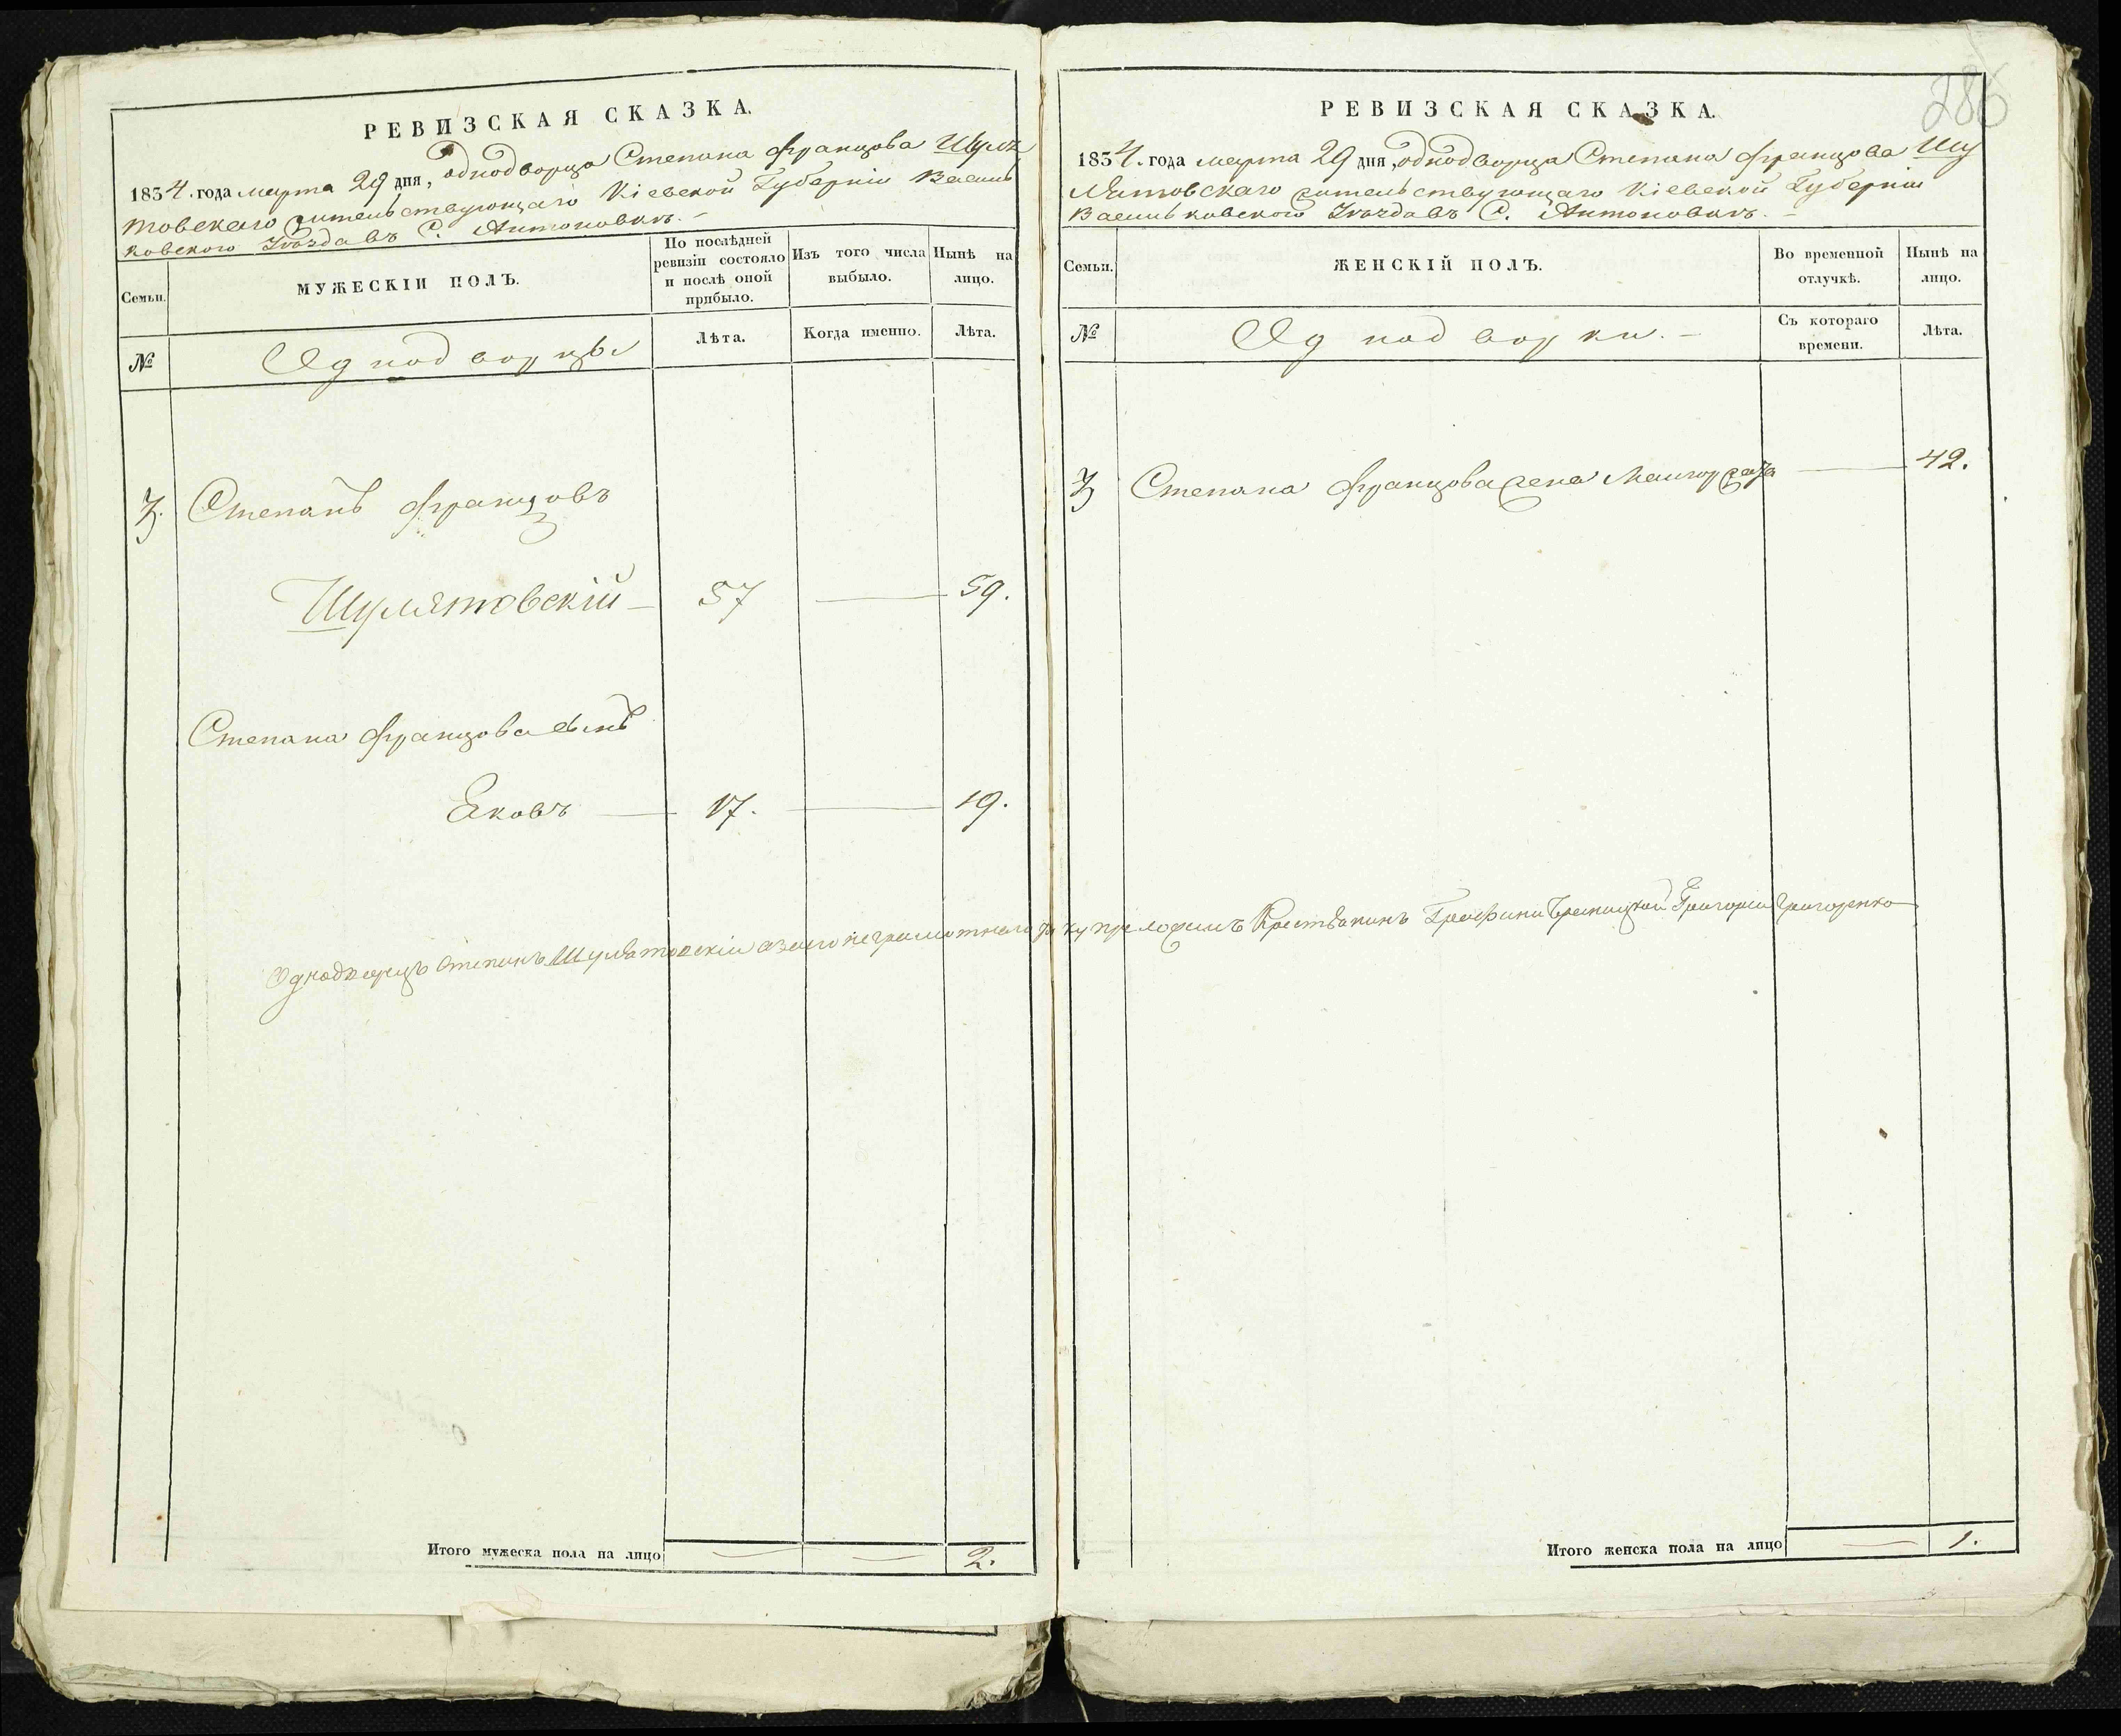 РЕВИЗСКАЯ СКАЗКА.
1834. года марта 29 дня, однодворца Степана Францова Шуля
товскаго жительствующаго Кіевской Губерніи Василь
ковского Уезда въ С. Антоновкѣ. –
Семьи.
МУЖЕСКІЙ ПОЛЪ.
По послѣдней ревизіи состояло и послѣ оной прибыло.
Изъ того числа выбыло.
Нынѣ на лицо.
№
Однодворцы
Лѣта.
Когда именно.
Лѣта.
3. Степанъ Францовъ
Шулятовскій – 57 — 59.
Степана Францова сынъ
Яковъ — 17. — 19.
Итого мужеска пола на лицо — — 2.
286
РЕВИЗСКАЯ СКАЗКА.
1834. года марта 29 дня, однодворца Степана Францова Шу
лятовскаго жительствующаго Кіевской Губерніи
Васильковского Уезда въ С. Антоновкѣ. –
Семьи.
ЖЕНСКІЙ ПОЛЪ.
Во временной отлучкѣ.
Нынѣ на лицо.
№
Однодворки. –
Съ котораго времени.
Лѣта.
3 Степана Францова жена Малгоржата — 42.
Однодворецъ Степанъ Шулятовскій а за его неграмотнаго руку приложилъ Крестьянинъ Графини Браницкой Григорій Григоренко
Итого женска пола на лицо — 1.